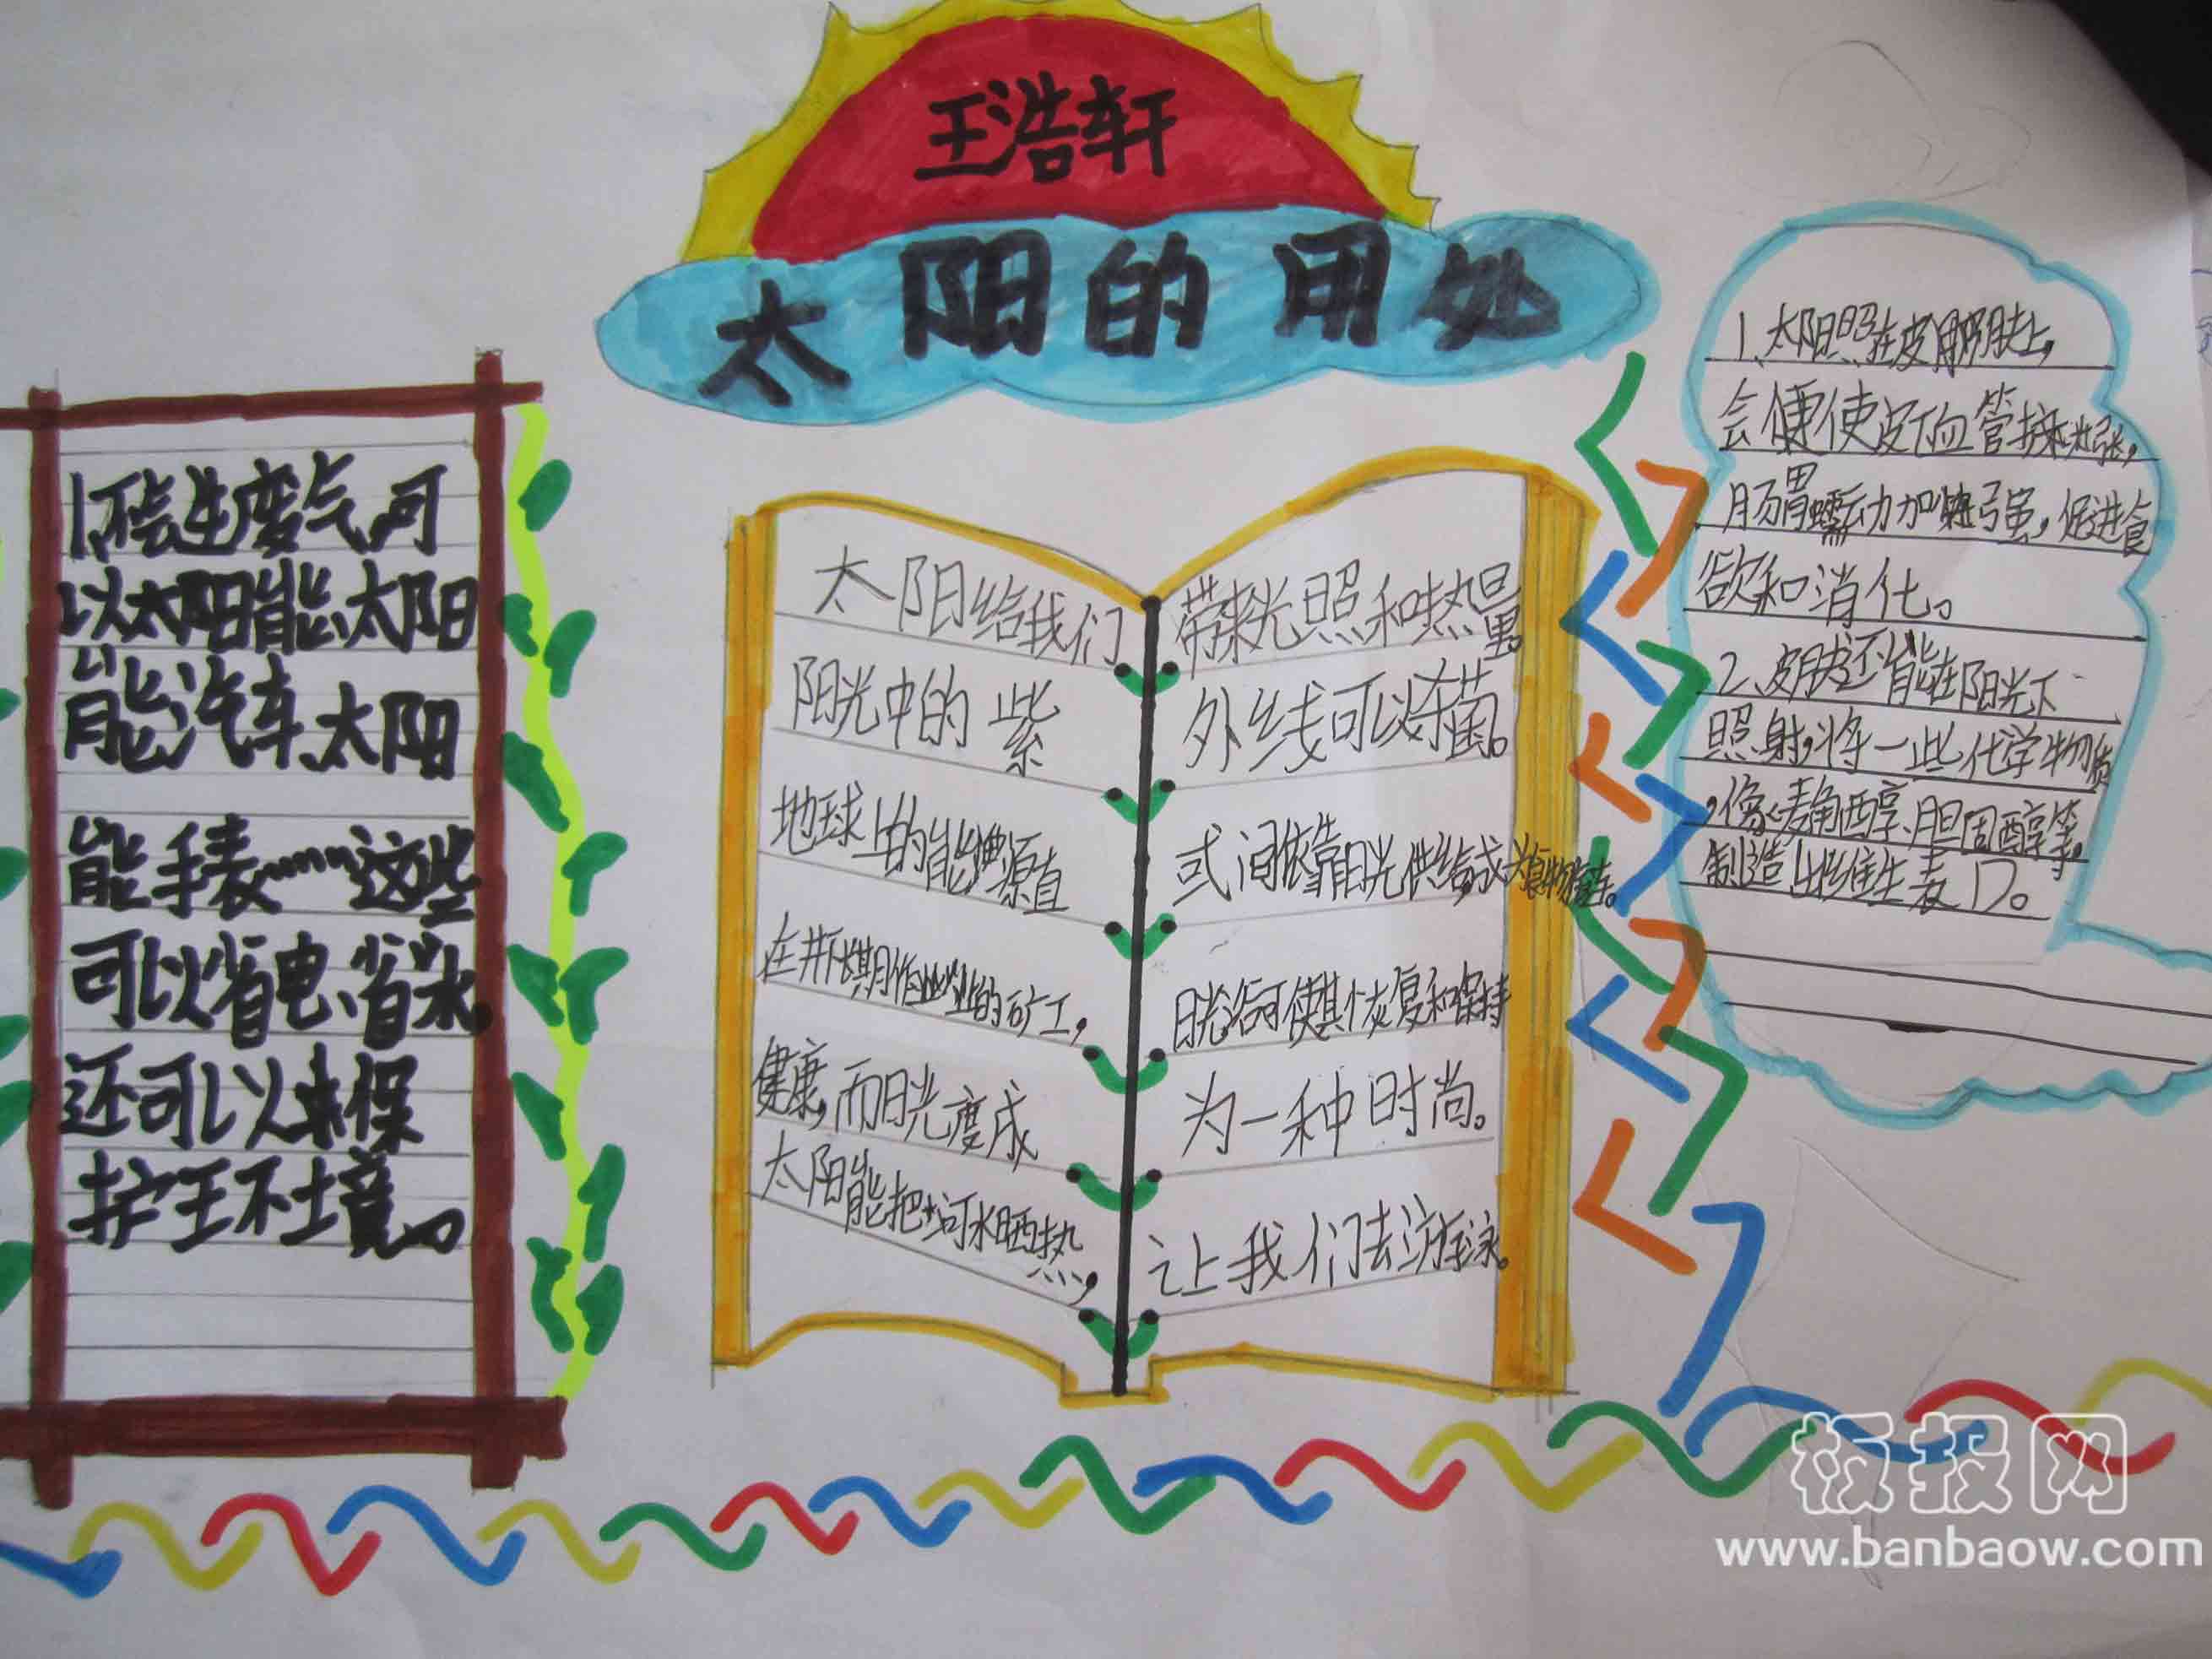 王浩轩
太阳的用处
以太阳能、太阳
能汽车、太阳
能手表……这些
可以省电、省水。
还可以来保
护王不境。
太阳给我们
带来光照和热量。
阳光中的紫
外线可以杀菌。
地球上的能源直
或间依靠阳光供给成
在井下长期作业的矿工,
阳光浴可使其恢复和保持
健康,而阳光度成
为一种时尚。
太阳能把河水晒热,
让我们去游泳。
1、太阳照在皮肤上,
会使皮血管扩张,
肠胃蠕动加强,促进食
欲和消化。
2、皮肤还能在阳光下
照射,将一些化学物质
,像麦角醇、胆固醇等,
制造出维生素D。
板报网
www.banbaow.com